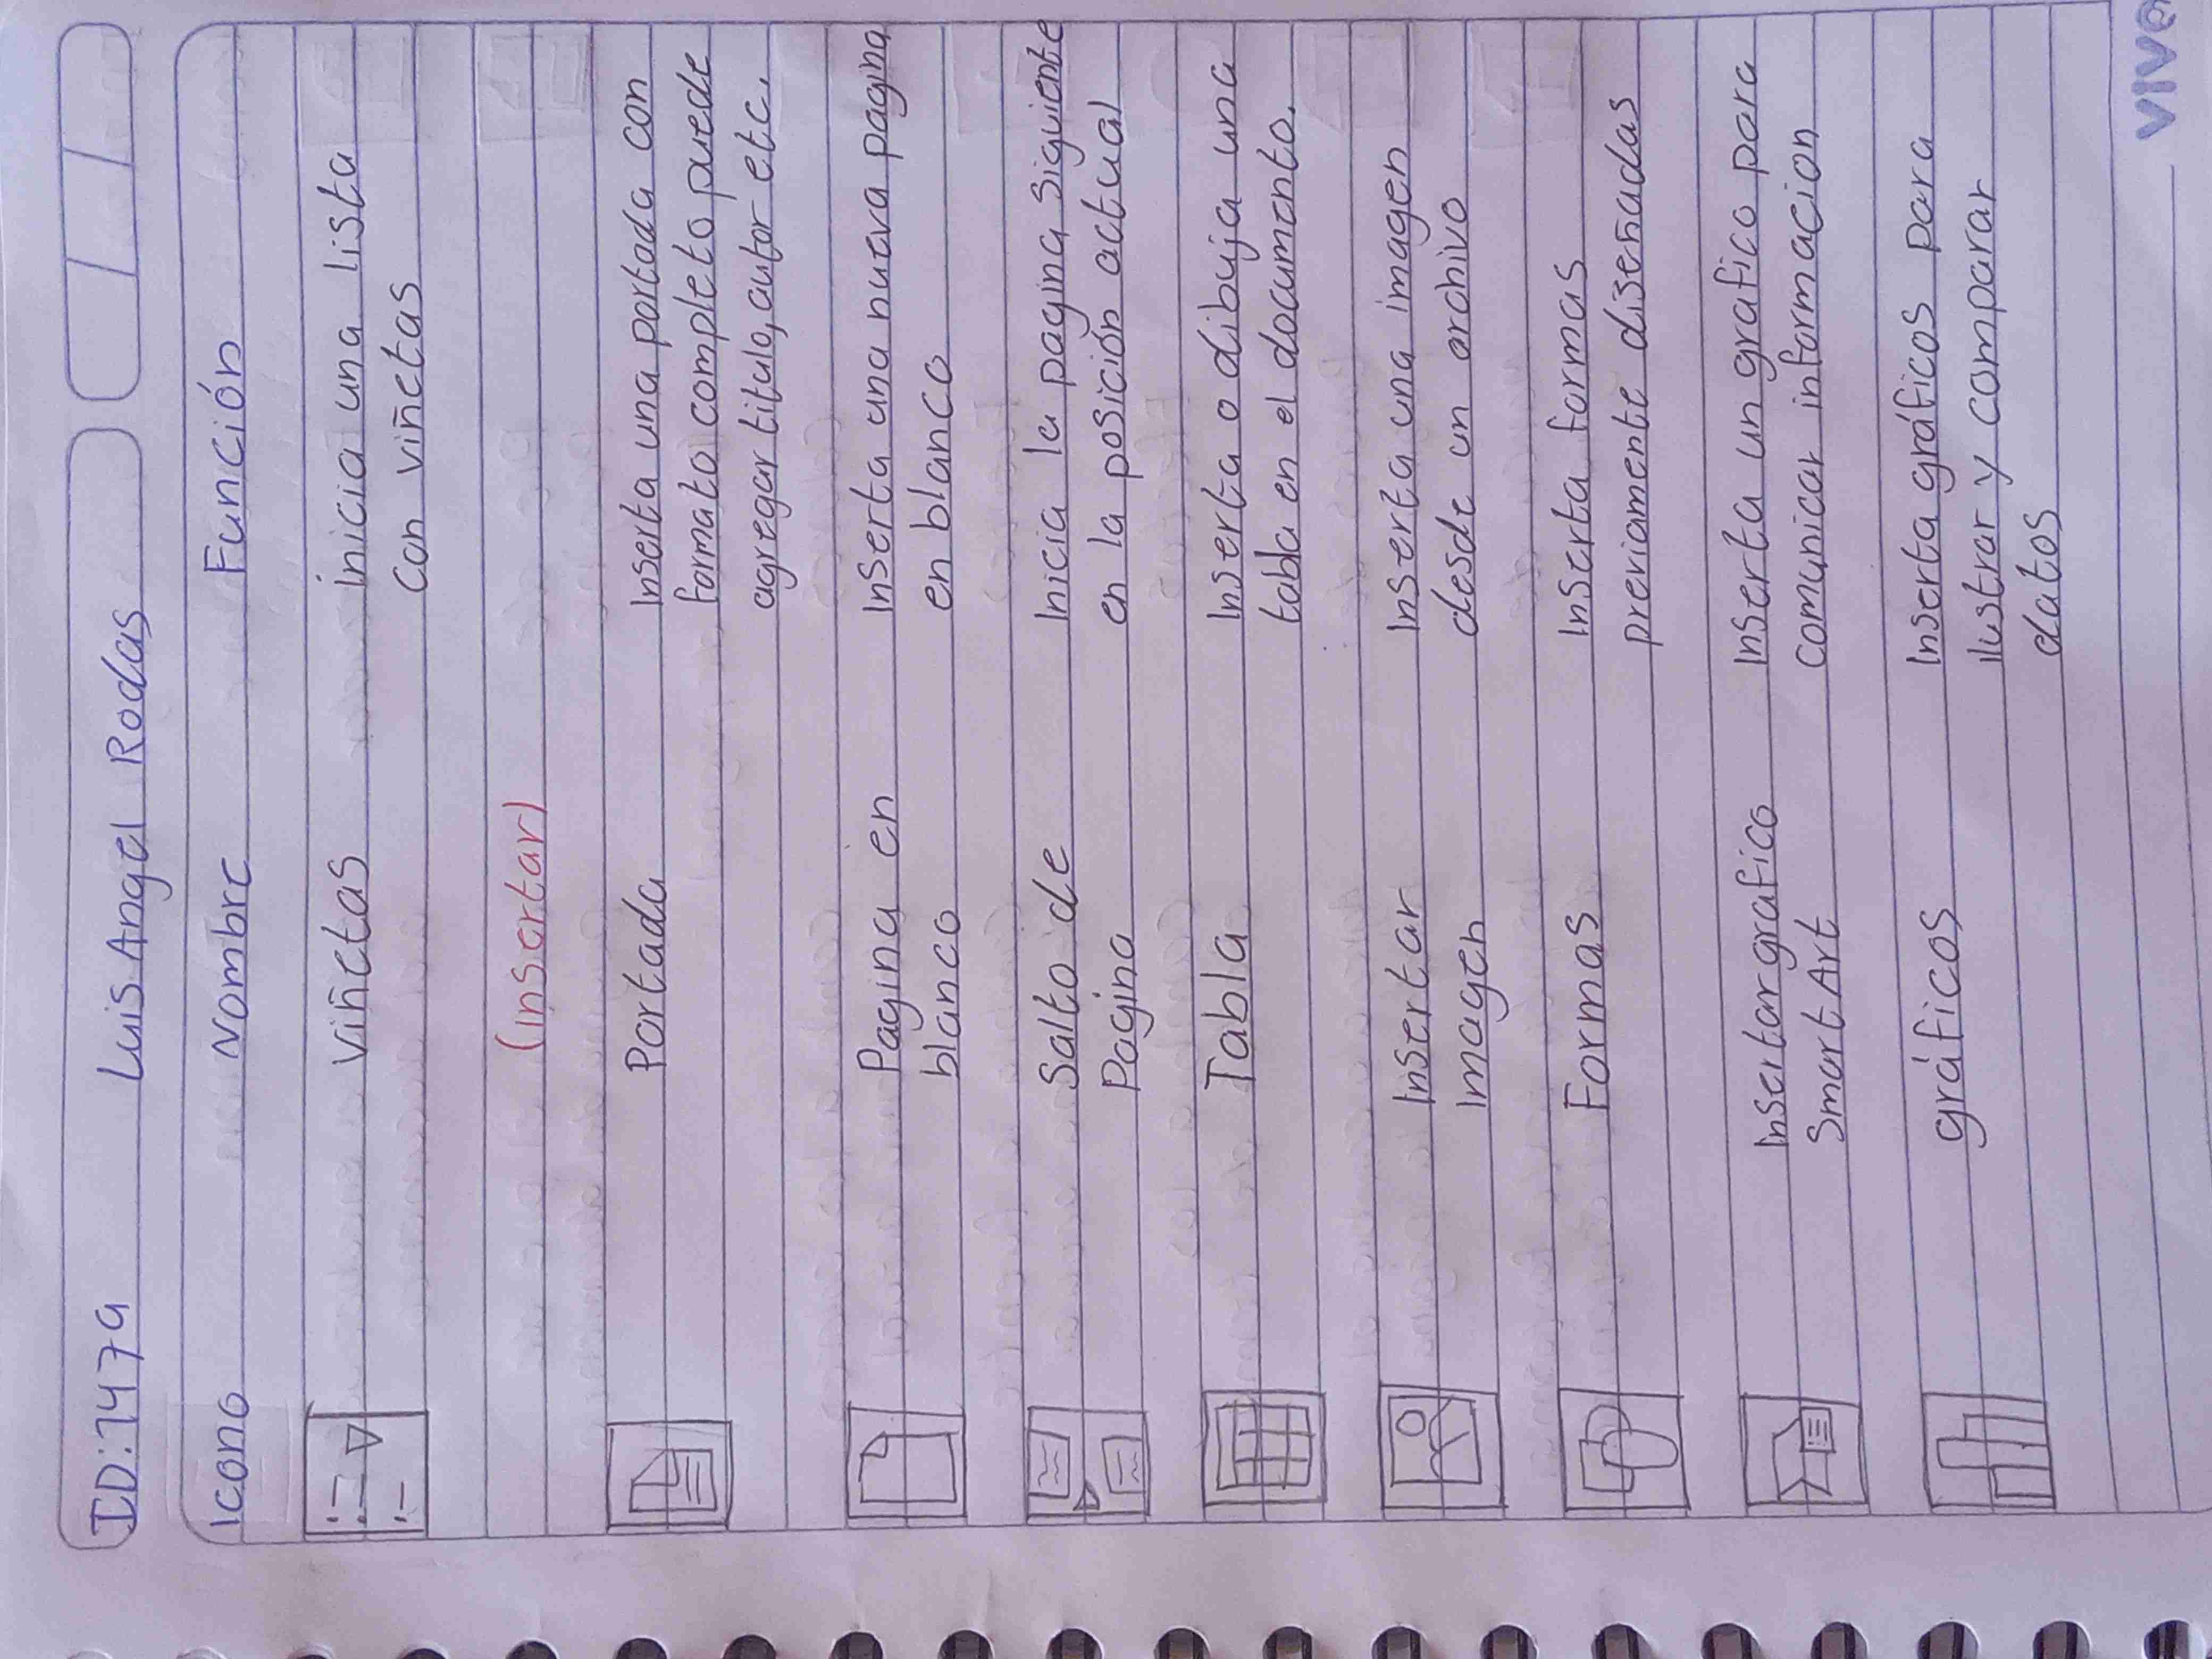 ID:7479 Luis Angel Rodas
Icono Nombre Función
viñetas inicia una lista
con viñetas
(insertar)
Portada Inserta una portada con
formato completo puede
agregar titulo, autor etc.
Pagina en Inserta una nueva pagina
blanco en blanco
Salto de Inicia la pagina siguiente
Pagina en la posición actual
Tabla Inserta o dibuja una
tabla en el documento.
Insertar Inserta una imagen
imagen desde un archivo
Formas Inserta formas
previamente diseñadas
Insertar grafico Inserta un grafico para
Smart Art comunicar informacion
gráficos Inserta gráficos para
ilustrar y comparar
datos